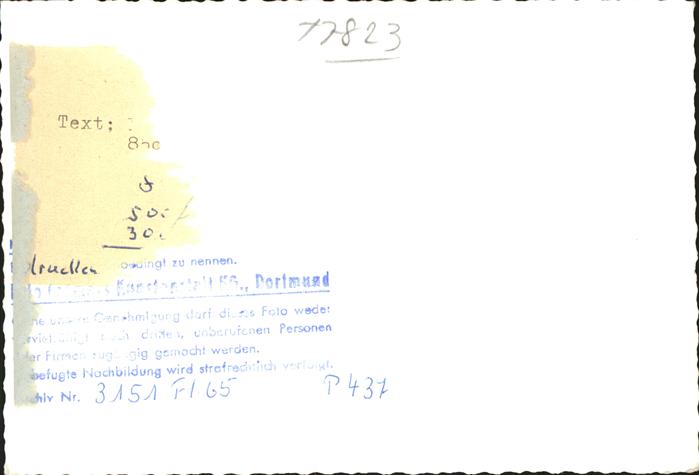 17823
Text;
50.-
30.
drucken
bedingt zu nennen.
Kunstanstalt KG., Dortmund
ohne unsere Genehmigung darf dieses Foto weder
vervielfältigt noch dritten, unberufenen Personen
oder Firmen zugängig gemacht werden.
befugte Nachbildung wird strafrechtlich verfolgt.
chiv Nr. 3151 Fl. 65 P 437